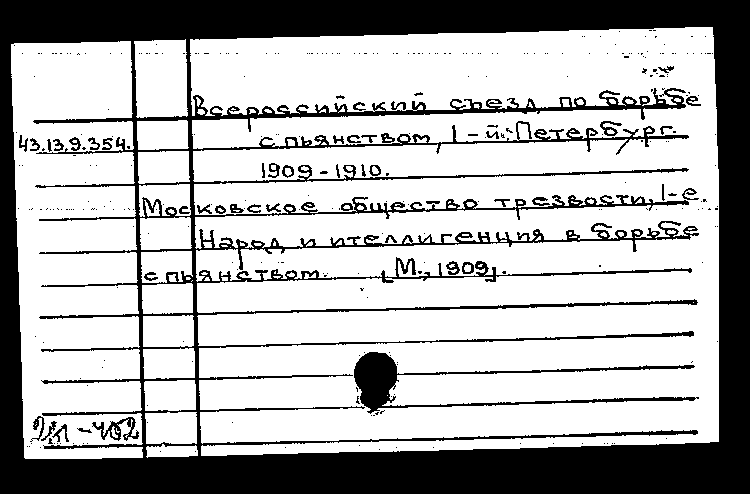 Всероссийский съезд по борьбе
43.13.9.354. с пьянством, 1-й. Петербург.
1909-1910.
Московское общество трезвости, 1-е.
Народ и ителлигенция в борьбе
с пьянством. [М., 1909].